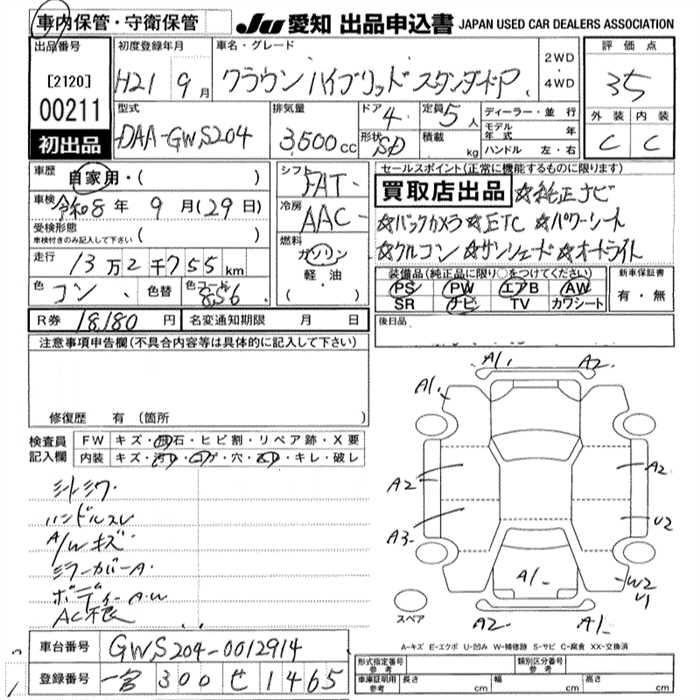 車内保管・守衛保管
JU 愛知 出品申込書 JAPAN USED CAR DEALERS ASSOCIATION
出品番号 初度登録年月 車名・グレード 2WD・4WD 評価点
[2120] H21 9月 クラウンハイブリッド スタンダードP 35
00211 型式 排気量 ドア 4 定員 5人 ディーラー・並行 外装 内装
初出品 DAA-GWS204 3500cc 形状 SD 積載 kg モデル年式 年 C C
ハンドル 左・右
車歴 自家用・( ) シフト FAT セールスポイント(正常に機能するものに限ります)
車検 令和8年 9月(29日) 冷房 AAC 買取店出品 ☆純正ナビ
受検形態 車検付きのみ記入して下さい ( ) 燃料 ガソリン 軽・油 ( ) ☆バックカメラ☆ETC☆パワーシート
走行 13万2千755km ☆クルコン☆サンシェード☆オートライト
色 コン 色替 色コード 8S6 装備品(純正品に限り○をつけてください) 新車保証書
PS PW エアB AW 有・無
SR ナビ TV カワシート
R券 18,180円 名変通知期限 月 日 後日品
注意事項申告欄(不具合内容等は具体的に記入して下さい)
修復歴 有 (箇所
検査員記入欄 FW キズ・飛石・ヒビ割・リペア跡・X要
内装 キズ・汚れ・コゲ・穴・スレ・キレ・破レ
シートシワ・
ハンドルスレ
A/Wキズ
ミラーカバーA・
ボディーA・W
AC不良
A1. A2.
A1.
A2 A2
A3. U2
A1. W2 U1
スペア A2. A1.
A-キズ E-エクボ U-凹み W-補修跡 S-サビ C-腐食 XX-交換済
車台番号 GWS204-0012914
登録番号 一宮 300 せ 1465
形式指定番号 参考 類別区分番号 参考
車庫証明用 参考 長さ cm 幅 cm 高さ cm